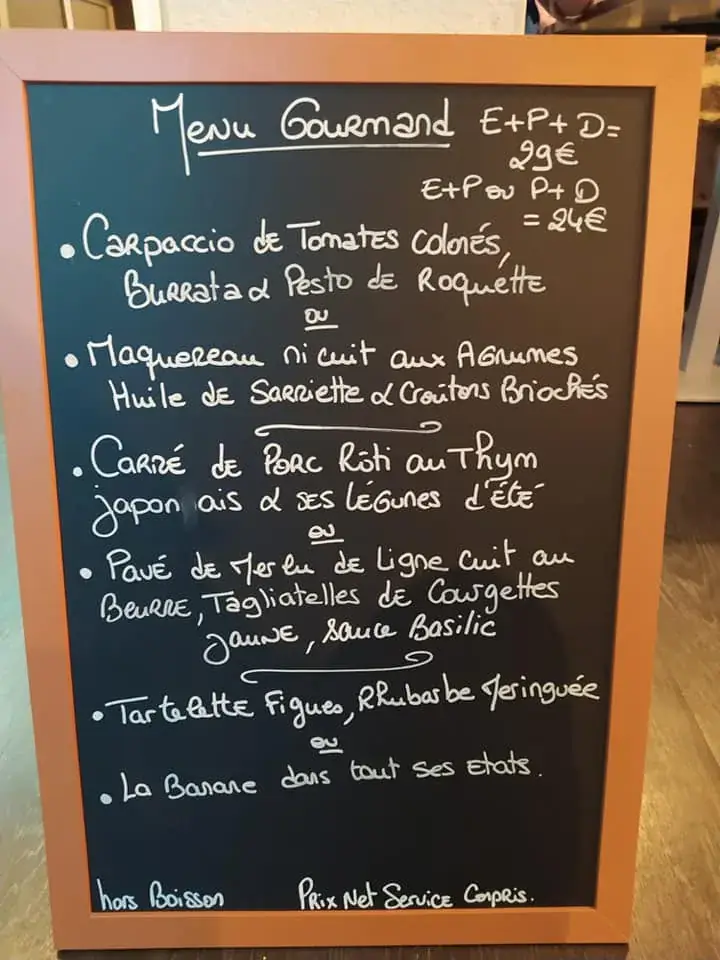 Menu Gourmand E+P+D=
29€
E+P ou P+D
= 24€
• Carpaccio de Tomates Colorés,
Burrata & Pesto de Roquette
ou
• Maquereau mi cuit aux Agrumes
Huile de Sarriette & Croûtons Briochés
• Carré de Porc Rôti au Thym
japon ais & ses Légunes d'Été
ou
• Pavé de Merlu de Ligne Cuit au
Beurre, Tagliatelles de Courgettes
jaune, sauce Basilic
• Tartelette Figues, Rhubarbe Meringuée
ou
• La Banane dans tout ses Etats.
hors Boisson Prix Net Service Compris.